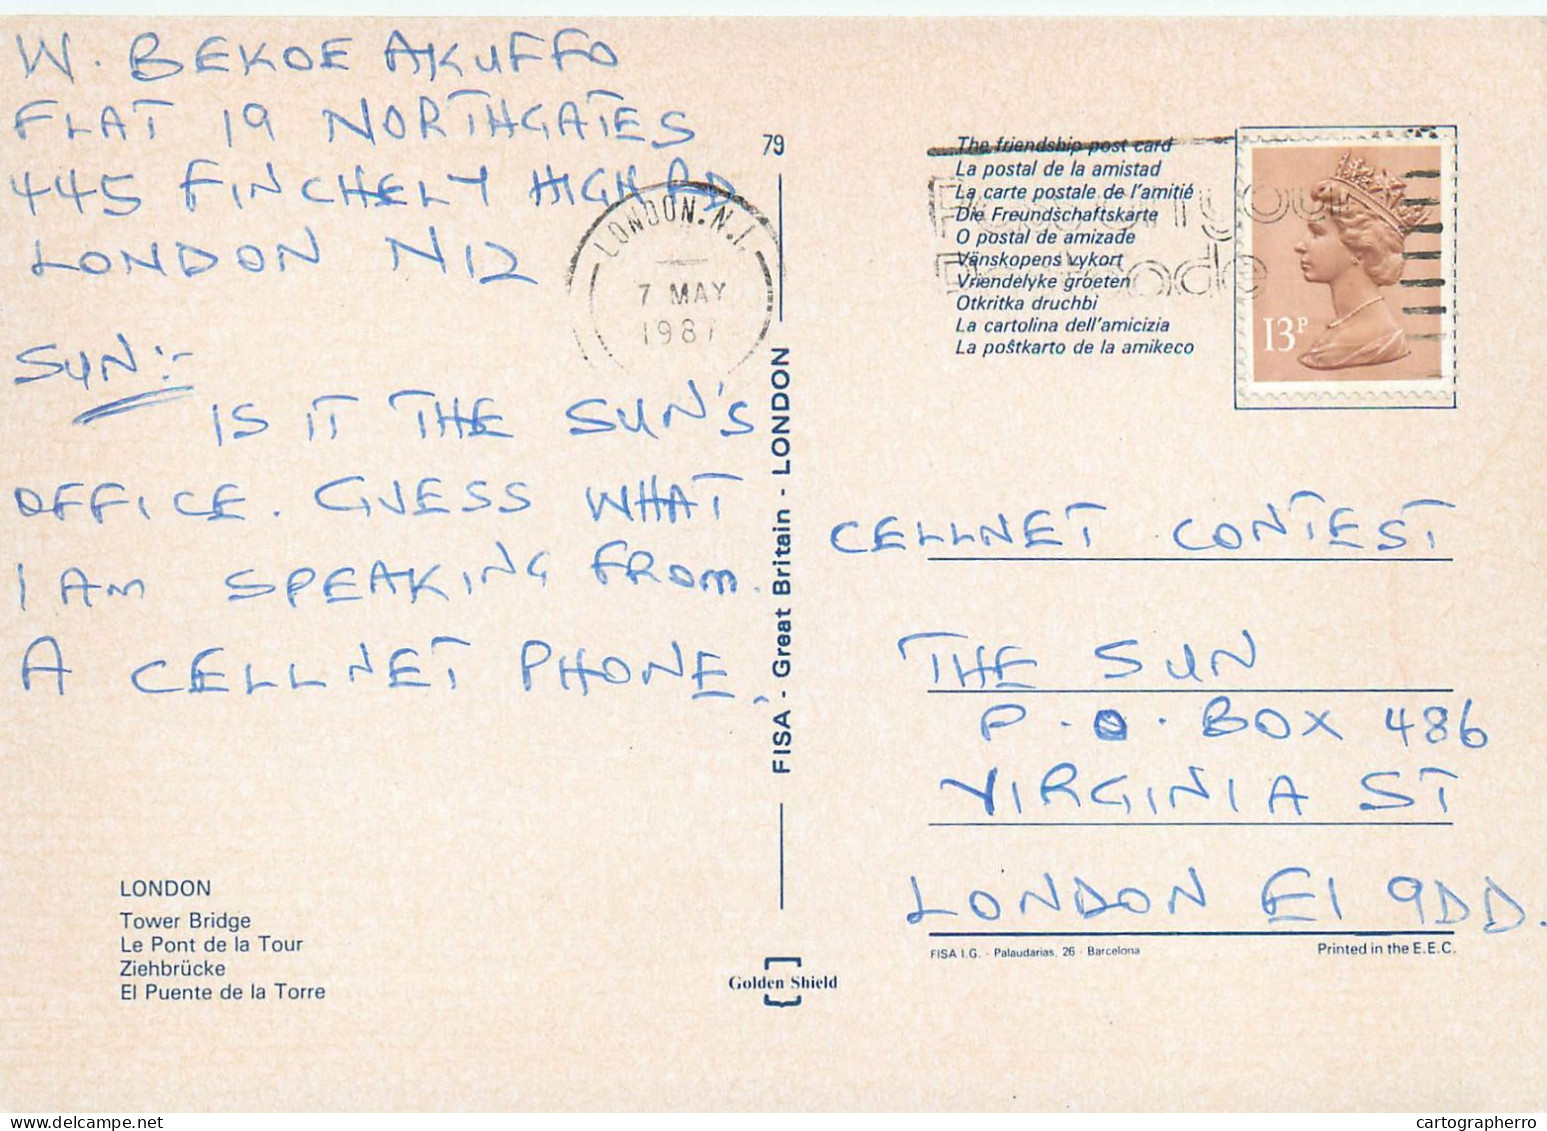 W. BEKOE AKUFFO
FLAT 19 NORTHGATES
445 FINCHELY HIGH RD
LONDON N12
SUN:-
IS IT THE SUN'S
OFFICE. GUESS WHAT
I AM SPEAKING FROM.
A CELLNET PHONE.
LONDON
Tower Bridge
Le Pont de la Tour
Ziehbrücke
El Puente de la Torre
79
FISA - Great Britain - LONDON
Golden Shield
LONDON. N.1.
7 MAY
1987
The friendship post card
La postal de la amistad
La carte postale de l'amitié
Die Freundschaftskarte
O postal de amizade
Vänskopens vykort
Vriendelyke groeten
Otkritka druchbi
La cartolina dell'amicizia
La poŝtkarto de la amikeco
Pass on your
Postcode
13P
CELLNET CONTEST
THE SUN
P.O. BOX 486
VIRGINIA ST
LONDON E1 9DD.
FISA I.G. - Palaudarias, 26 - Barcelona
Printed in the E.E.C.
cartographerro